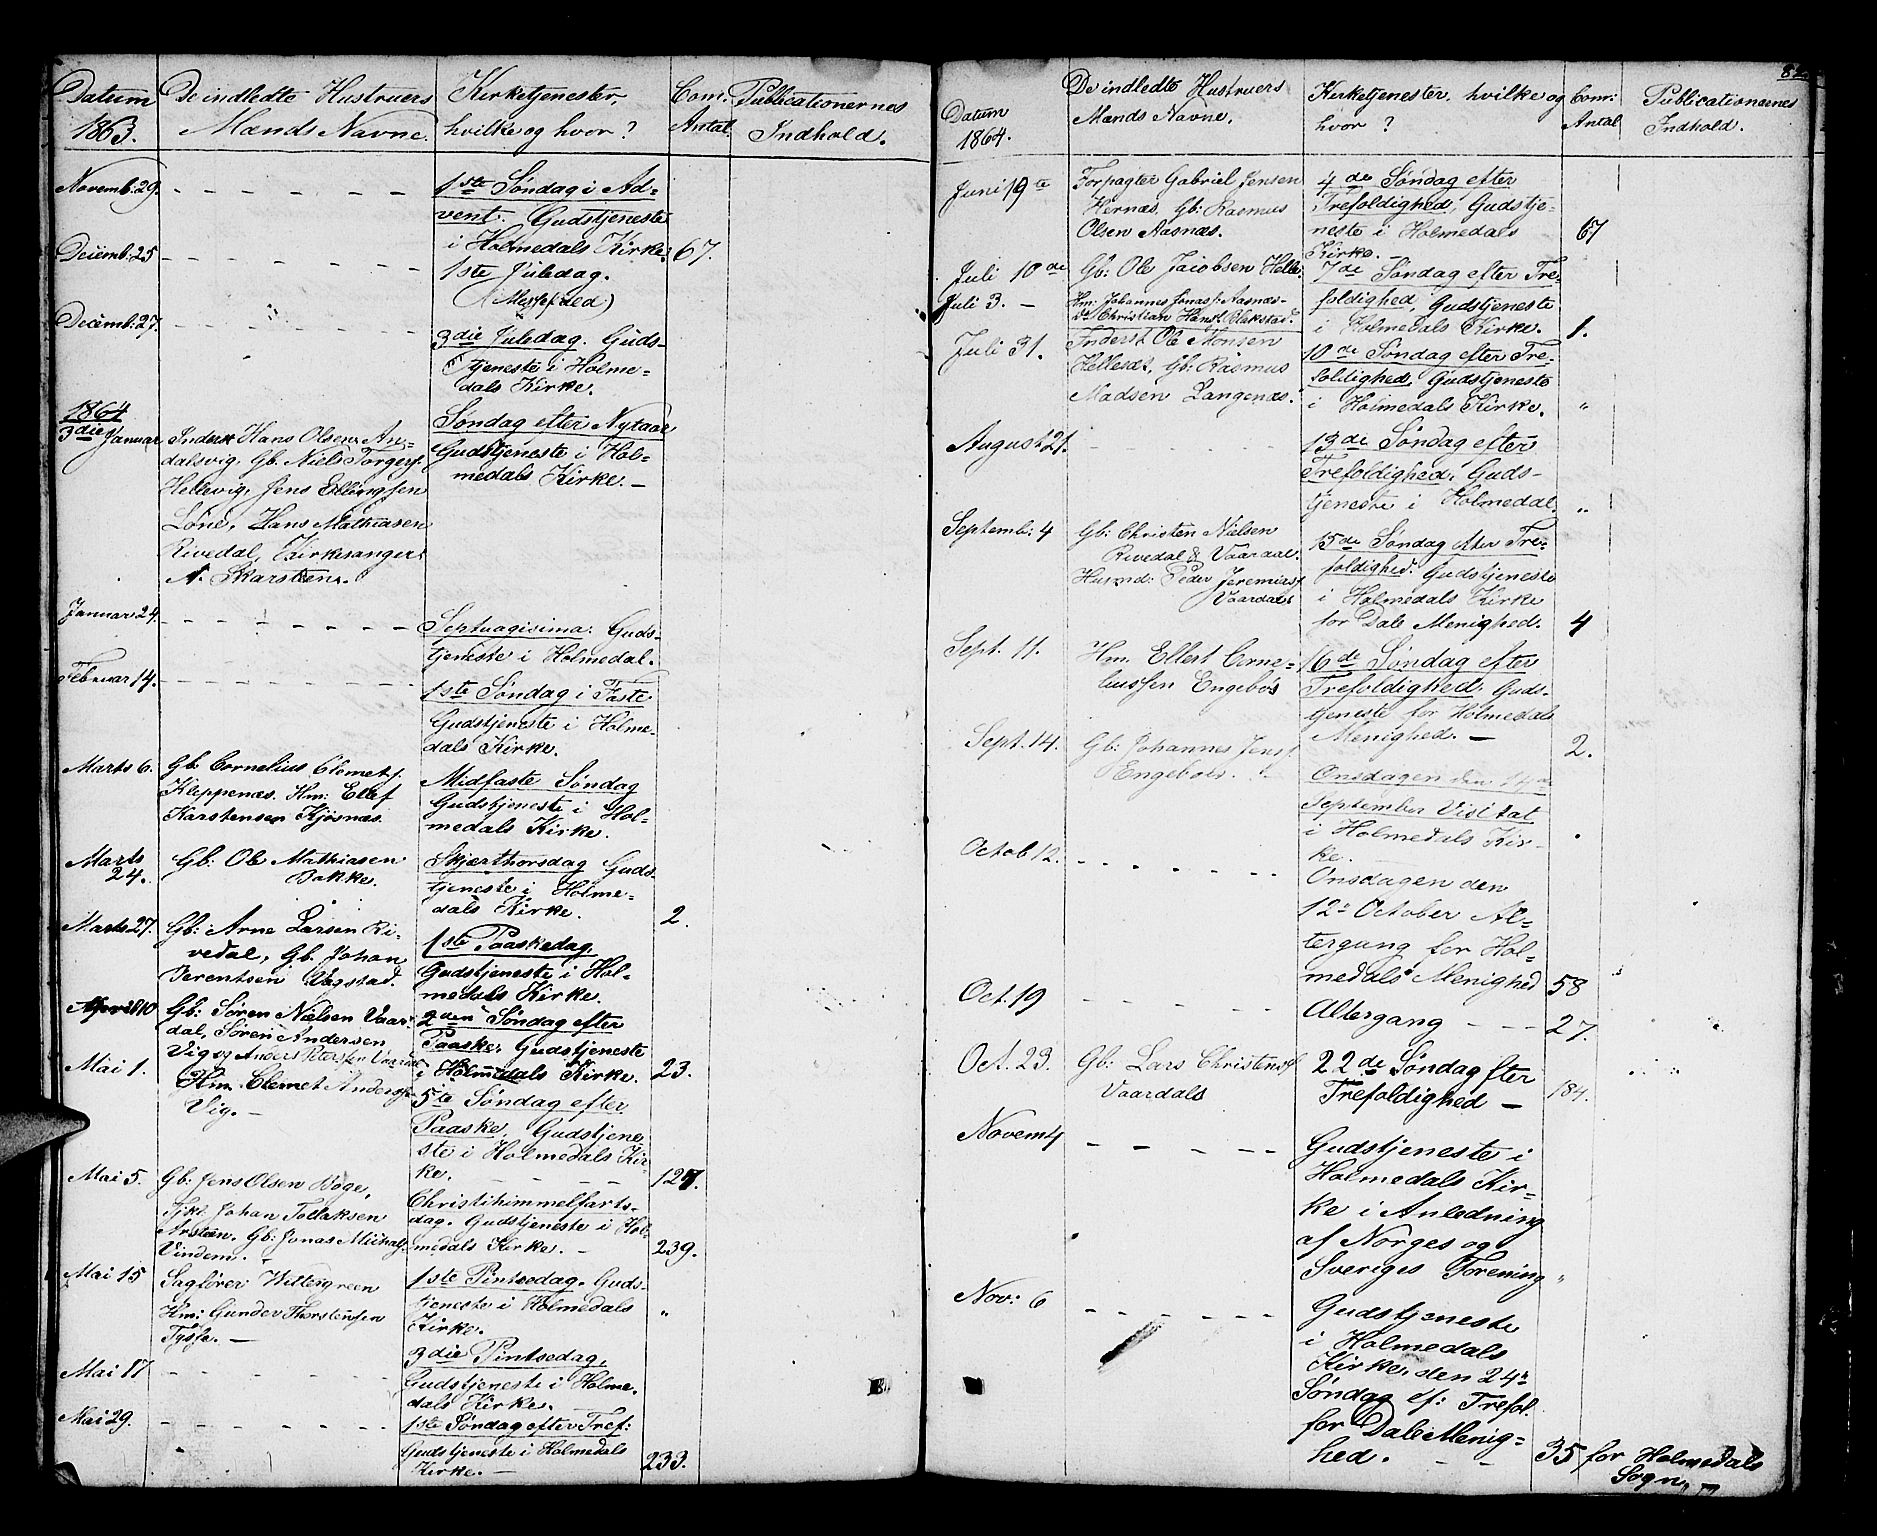 Datum
1863.
De indledte Hustruers
Mænds Navne.
Kirketjenester,
hvilke og hvor?
Com:
Antal
Publicationernes
Indhold.
Novemb: 29.
1ste Søndag i Ad-
vent. Gudstjeneste
i Holmedals Kirke:
67.
Decemb: 25
1ste Juledag.
(Messefred)
Decemb: 27.
3die Juledag. Guds-
tjeneste i Holme-
dals Kirke.
1864
3die Januar
Inderst Hans Olsen An-
dalsvig, Gb. Niels Torgers.
Hellevig, Jens Ellingsen
Løne, Hans Mathiasen
Rivedal, Kirkesanger
A. Skarsten.
Søndag efter Nytaar
Gudstjeneste i Hol-
medals Kirke. —
Januar 24.
Septuagisima. Guds-
tjeneste i Holmedal.
Februar 14.
1ste Søndag i Faste
Gudstjeneste i Holme-
dals Kirke.
Marts 6.
Gb. Cornelius Clemets.
Kleppenæs. Hm: Ellef
Karstensen Kjøsnæs.
Midfaste Søndag
Gudstjeneste i Hol-
medals Kirke.
Marts
24.
Gb: Ole Mathiasen
Bakke.
Skjærthorsdag Guds-
tjeneste i Holme-
dals Kirke.
2.
Marts 27.
Gb: Arne Larsen Ri-
vedal, Gb. Johan
Berentsen Vagstad.
1ste Paaskedag.
Gudstjeneste i Hol-
medals Kirke.
April 10
Gb: Søren Nielsen Vaar-
dal, Søren Andersen
Vig og Anders Petersen Vaardal
2den Søndag efter
Paaske. Gudstjeneste
i Holmedals Kirke.
23.
Mai 1.
Hm. Clemet Anders.
Vig. —
5te Søndag efter
Paaske. Gudstjene-
ste i Holmedals Kir-
ke.
127.
Mai 5.
Gb: Jens Olsen Bøge,
Johan Tollaksen
Gb: Jonas Michals.
Vindem. —
Christihimmelfarts-
dag. Gudstjeneste i Hol-
medals Kirke. —
239.
Mai 15
Sagfører Wettergreen
Hm: Gunder Thorstensen
Tysse. —
1ste Pintsedag. Guds-
tjeneste i Holmedals
Kirke.
"
Mai 17
3die Pintsedag.
Gudstjeneste i Holme-
dals Kirke. —
Mai 29.
1ste Søndag efter Tref:
Gudstjeneste i Holmedals
Kirke. —
233.
82
Datum
1864.
De indledte Hustruers
Mænds Navne.
Kirketjenester, hvilke og
hvor?
Com:
Antal
Publicationernes
Indhold.
Juni 19te
Forpagter Gabriel Jensen
Hernæs. Gb: Rasmus
Olsen Aasnæs.
4de Søndag efter
Trefoldighed, Gudstje-
neste i Holmedals
Kirke. —
67
Juli 10de
Gb: Ole Jacobsen Helle.
7de Søndag efter Tre-
foldighed, Gudstjeneste
i Holmedals Kirke.
1.
Juli 3. —
Hm: Johannes Jonas. Aasnæs-
Do Christian Hans. Blakstad.
Juli 31.
Inderst Ole Monsen
Helles. Gb: Rasmus
Madsen Langenæs.
10de Søndag efter Tre-
foldighed, Gudstjeneste
i Holmedals Kirke.
"
August 21.
13de Søndag efter
Trefoldighed. Guds-
tjeneste i Holmedal.
"
Septemb: 4
Gb: Christen Nielsen
Rivedal & Vaardal.
Husmd: Peder Jeremias.
Vaardals
15de Søndag efter Tre-
foldighed. Gudstjeneste
i Holmedals Kirke
for Dale Menighed.
4
Sept. 11.
Hm. Ellert Corne-
liussen Engebøs
16de Søndag efter
Trefoldighed. Guds-
tjeneste for Holmedals
Menighed. —
2.
Sept. 14.
Gb: Johannes Jens.
Engebøes.
Onsdagen den 14de
September Visitat
i Holmedals Kir-
ke.
Octob 12.
Onsdagen den
12te October Al-
tergang for Hol-
medals Menighed
58
Oct. 19
Altergang
27.
Oct. 23.
Gb: Lars Christens.
Vaardals
22de Søndag efter
Trefoldighed —
184.
Novem 4
Gudstjeneste i
Holmedals Kir-
ke i Anledning
af Norges og
Sveriges Forening
"
Nov: 6
Gudstjeneste
i Holmedals
Kirke, den 24de
Søndag ef: Trefol.
for Dale Menig-
hed.
35 for Holmedals
Sogn. —